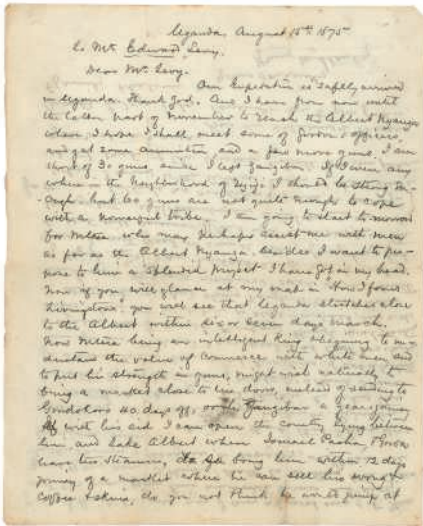 Uganda August 15th 1875
To Mr. Edward Levy.
Dear Mr. Levy.
Our Expedition is safely arrived
in Uganda. Thank God. And I have from now until
the latter part of November to reach the Albert Nyanza
where I hope I shall meet some of Gordon's officers
and get some ammunition and a few more guns. I am
short of 30 guns since I left Zanzibar. If I were any
where in the neighborhood of Ujiji I should be strong en-
ough. but 60 guns are not quite enough to cope
with a tribe. I am going to start to morrow
for Mtesa who may perhaps assist me with men
as far as the Albert Nyanza. besides I want to pro-
pose to him a splendid project I have got in my head.
Now if you will glance at my map in "How I found
Livingstone" you will see that Uganda stretches close
to the Albert within six or seven days march.
Now Mtesa being an intelligent King & beginning to un-
derstand the value of commerce with white men and
to put his strength in guns, might wish naturally to
bring a market close to his door, instead of sending to
Gondokoro 40 days off, or to Zanzibar a years journey
If with his aid I can open the country lying between
him and Lake Albert where Ismail Pasha &
have his steamers, & so bring him within 12 days
journey of a market where he can sell his ivory
coffee & skins, do you not think he would jump at